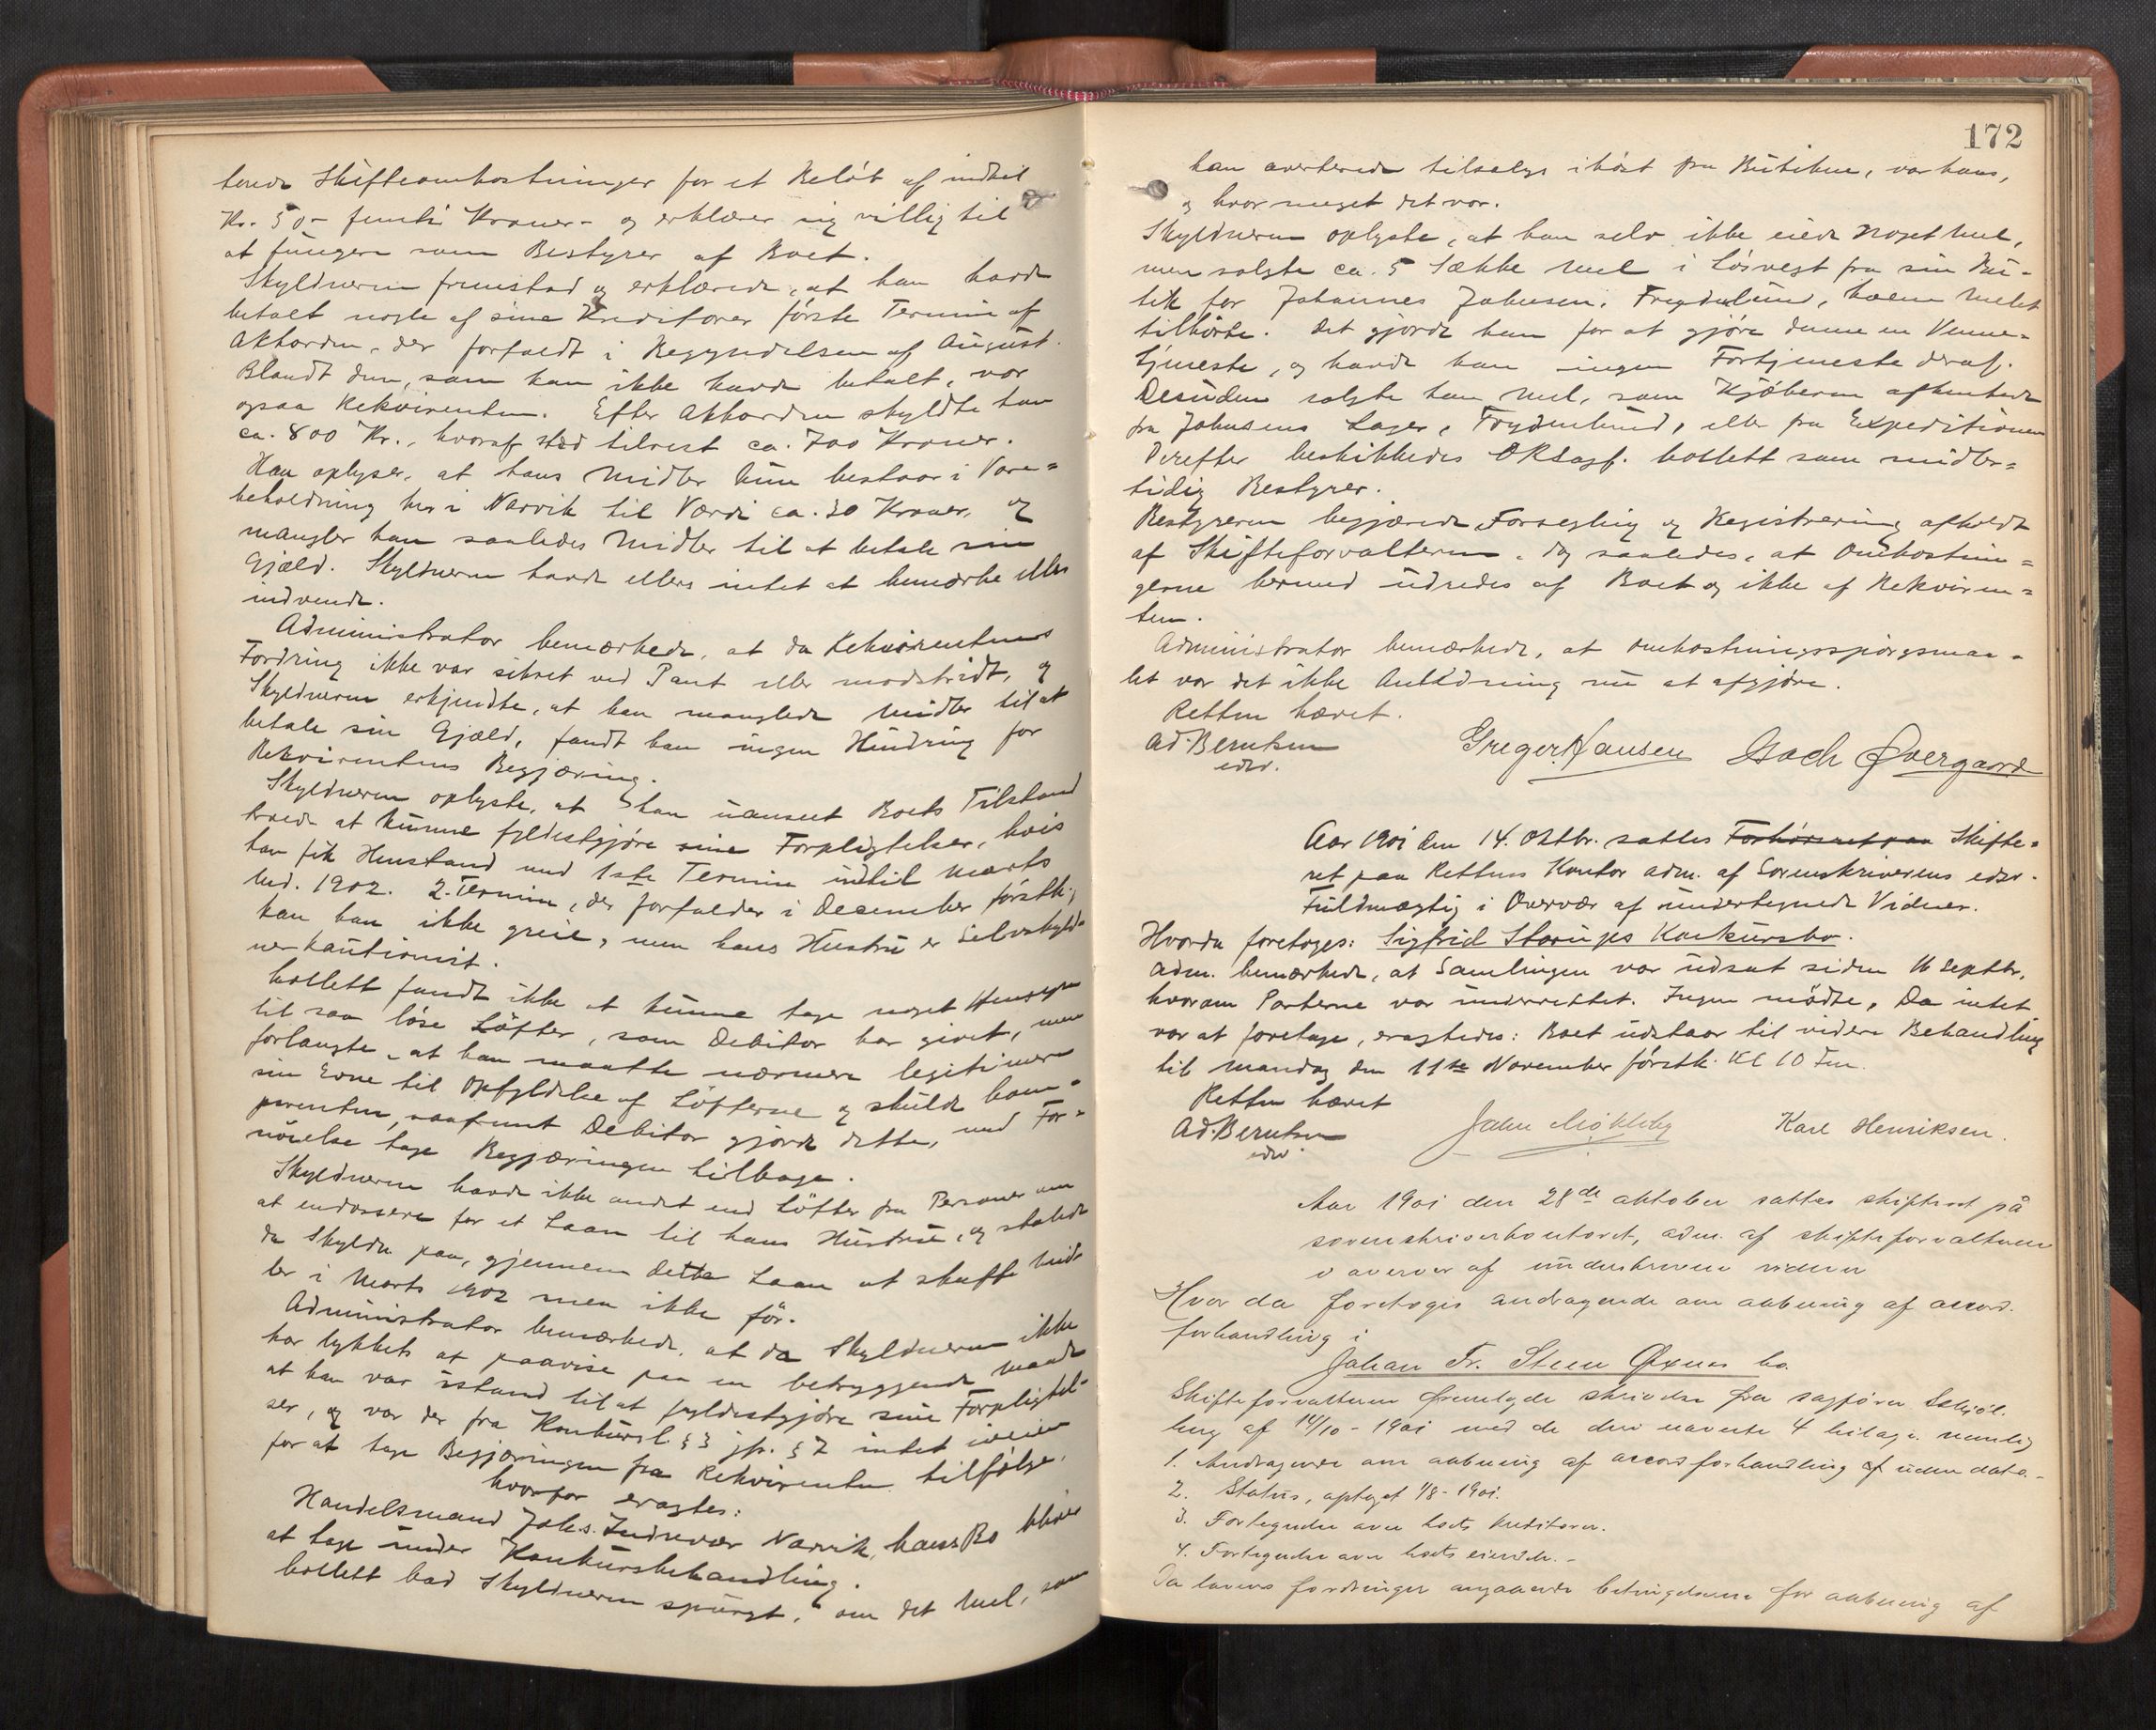 terede Skifteomkostninger for et Beløb af indtil
Kr. 50 – femti Kroner – og erklærer sig villig til
at fungere som Bestyrer af Boet.
Skyldneren fremstod og erklærede, at han havde
betalt nogle af sine Kreditorer første Termin af
Akkorden, der forfaldt i Begyndelsen af August.
Blandt dem, som han ikke havde betalt, var
ogsaa Rekvirenten. Efter Akkorden skyldte han
ca. 800 Kr., hvoraf stod tilrest ca. 700 Kroner.
Han oplyser, at hans Midler kun bestaar i Vare=
beholdning her i Narvik til Værdi ca. 30 Kroner, og
mangler han saaledes Midler til at betale sin
Gjæld. Skyldneren havde ellers intet at bemærke eller
indvende.
Administrator bemærkede, at da Rekvirentens
Fordring ikke var sikret ved Pant eller modstridt, og
Skyldneren erkjendte, at han manglede Midler til at
betale sin Gjæld, fandt han ingen Hindring for
Rekvirentens Begjæring.
Skyldneren oplyste, at han uanseet Boets Tilstand
troede at kunne fyldestgjøre sine Forpligtelser, hvis
han fik Henstand med 1ste Termin indtil Marts
Md. 1902. 2. Termin, der forfalder i December førstk.,
kan han ikke greie, men hans Hustru er Selvskyld-
nerkautionist.
Collett fandt ikke at kunne tage noget Hensyn
til saa løse Løfter, som Debitor har givet, men
forlangte, at han maatte nærmere legitimere
sin Evne til Opfyldelse af Løfterne og skulde kom=
parenten, saafremt Debitor gjorde dette, med For=
nøielse tage Begjæringen tilbage.
Skyldneren havde ikke andet end Løfter fra Personer om
at endossere for et Laan til hans Hustru, og stolede
da Skyldn paa, gjennem dette Laan at skaffe Mid
ler i Marts 1902 men ikke før.
Administrator bemærkede, at da Skyldneren ikke
har lykkets at paavise paa en betryggende Maade
at han var istand til at fyldestgjøre sine Forpligtel-
ser, og var der fra Konkursl. § 3 jfr. § 7 intet iveien
for at tage Begjæringen fra Rekvirenten tilfølge,
hvorfor eragtes:
Handelsmand Johs. Indrevær Narvik, hans Bo bliver
at tage under Konkursbehandling.
Collett bad Skyldneren spurgt, om det Mel, som
172
han averterede tilsalgs i høst fra Butiken, var hans,
og hvor meget det var.
Skyldneren oplyste, at han selv ikke eiede noget Mel,
men solgte ca. 5 Sække Mel i Løsvegt fra sin Bu-
tik for Johannes Johnsen, Frydenlund, hvem Melet
tilhørte. Det gjorde han for at gjøre denne en Venne-
tjeneste, og havde han ingen Fortjeneste deraf.
Desuden solgte han Mel, som Kjøberen afhentede
fra Johnsens Lager, Frydenlund, eller fra Expeditionen
Derefter beskikkedes ORSagf. Collett som midler=
tidig Bestyrer.
Bestyreren begjærede Forsegling og Registrering afholdt
af Skifteforvalteren, dog saaledes, at Omkostnin=
gerne hermed udredes af Boet og ikke af Rekviren=
ten.
Administrator bemærkede, at Omkostningsspørgsmaa-
let var det ikke Anledning nu at afgjøre.
Retten hævet.
Ad. Berntsen
edsv.
Greger Hansen Isach Øvergaard
Aar 1901 den 14. Oktbr. sattes Forhørsret paa Skifte=
ret paa Rettens Kontor adm. af Sorenskriverens edsv.
Fuldmægtig i Overvær af undertegnede Vidner.
Hvorda foretoges: Sigfrid Storups Konkursbo.
Adm. bemærkede, at Samlingen var udsat siden 16 Septbr.
hvorom Parterne var underrettet. Ingen mødte. Da intet
var at foretage, eragtedes: Boet udstaar til videre Behandling
til Mandag den 11te November førstk. Kl 10 Fm.
Retten hævet
Ad. Berntsen
edsv.
Karl Henriksen.
Aar 1901 den 28de oktober sattes skifteret på
sorenskriverkontoret, adm. af skifteforvalteren
i overvær af underskrevne vidner
Hvor da foretoges andragende om aabning af accord.
forhandling i
Johan Fr. Steen Øxnes bo.
Skifteforvalteren fremlagde skrivelse fra sagfører
berg af 14/10 - 1901 med de deri nævnte 4 bilage nemlig
1. Andragende om aabning af accordforhandling af uden dato.-
2. Status, optaget 1/8 - 1901.
3. Fortegnelse over boets kreditorer.
4. Fortegnelse over boets eiendele. -
Da lovens fordringer angaaende betingelserne for aabning af